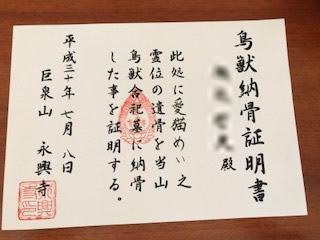 鳥獣納骨証明書
殿
此処に愛猫めい之
霊位の遺骨を当山
鳥獣合祀墓に納骨
した事を証明する。
平成三十年七月八日
巨泉山 永興寺